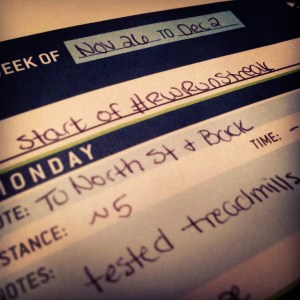 EEK OF Nov 26 to Dec 2
start of #RWRunStreak
MONDAY
UTE: To North St + Back
TIME:
STANCE: ~5
NOTES: tested treadmills